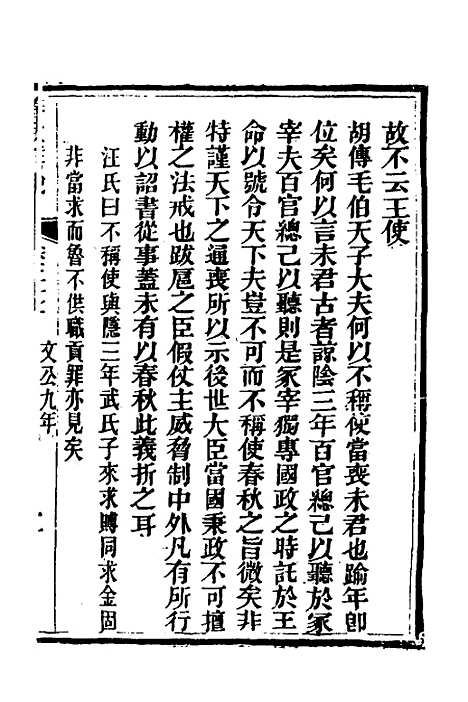 故不云王使
胡傳毛伯天子大夫何以不稱使當喪未君也踰年卽
位矣何以言未君古者諒陰三年百官總己以聽於冢
宰夫百官總己以聽則是冢宰獨專國政之時託於王
命以號令天下夫豈不可而不稱使春秋之旨微矣非
特謹天下之通喪所以示後世大臣當國秉政不可擅
權之法戒也跋扈之臣假仗主威脅制中外凡有所行
動以詔書從事蓋未有以春秋此義折之耳
汪氏曰不稱使與隱三年武氏子來求賻同求金固
非當求而魯不供職貢罪亦見矣
文公九年